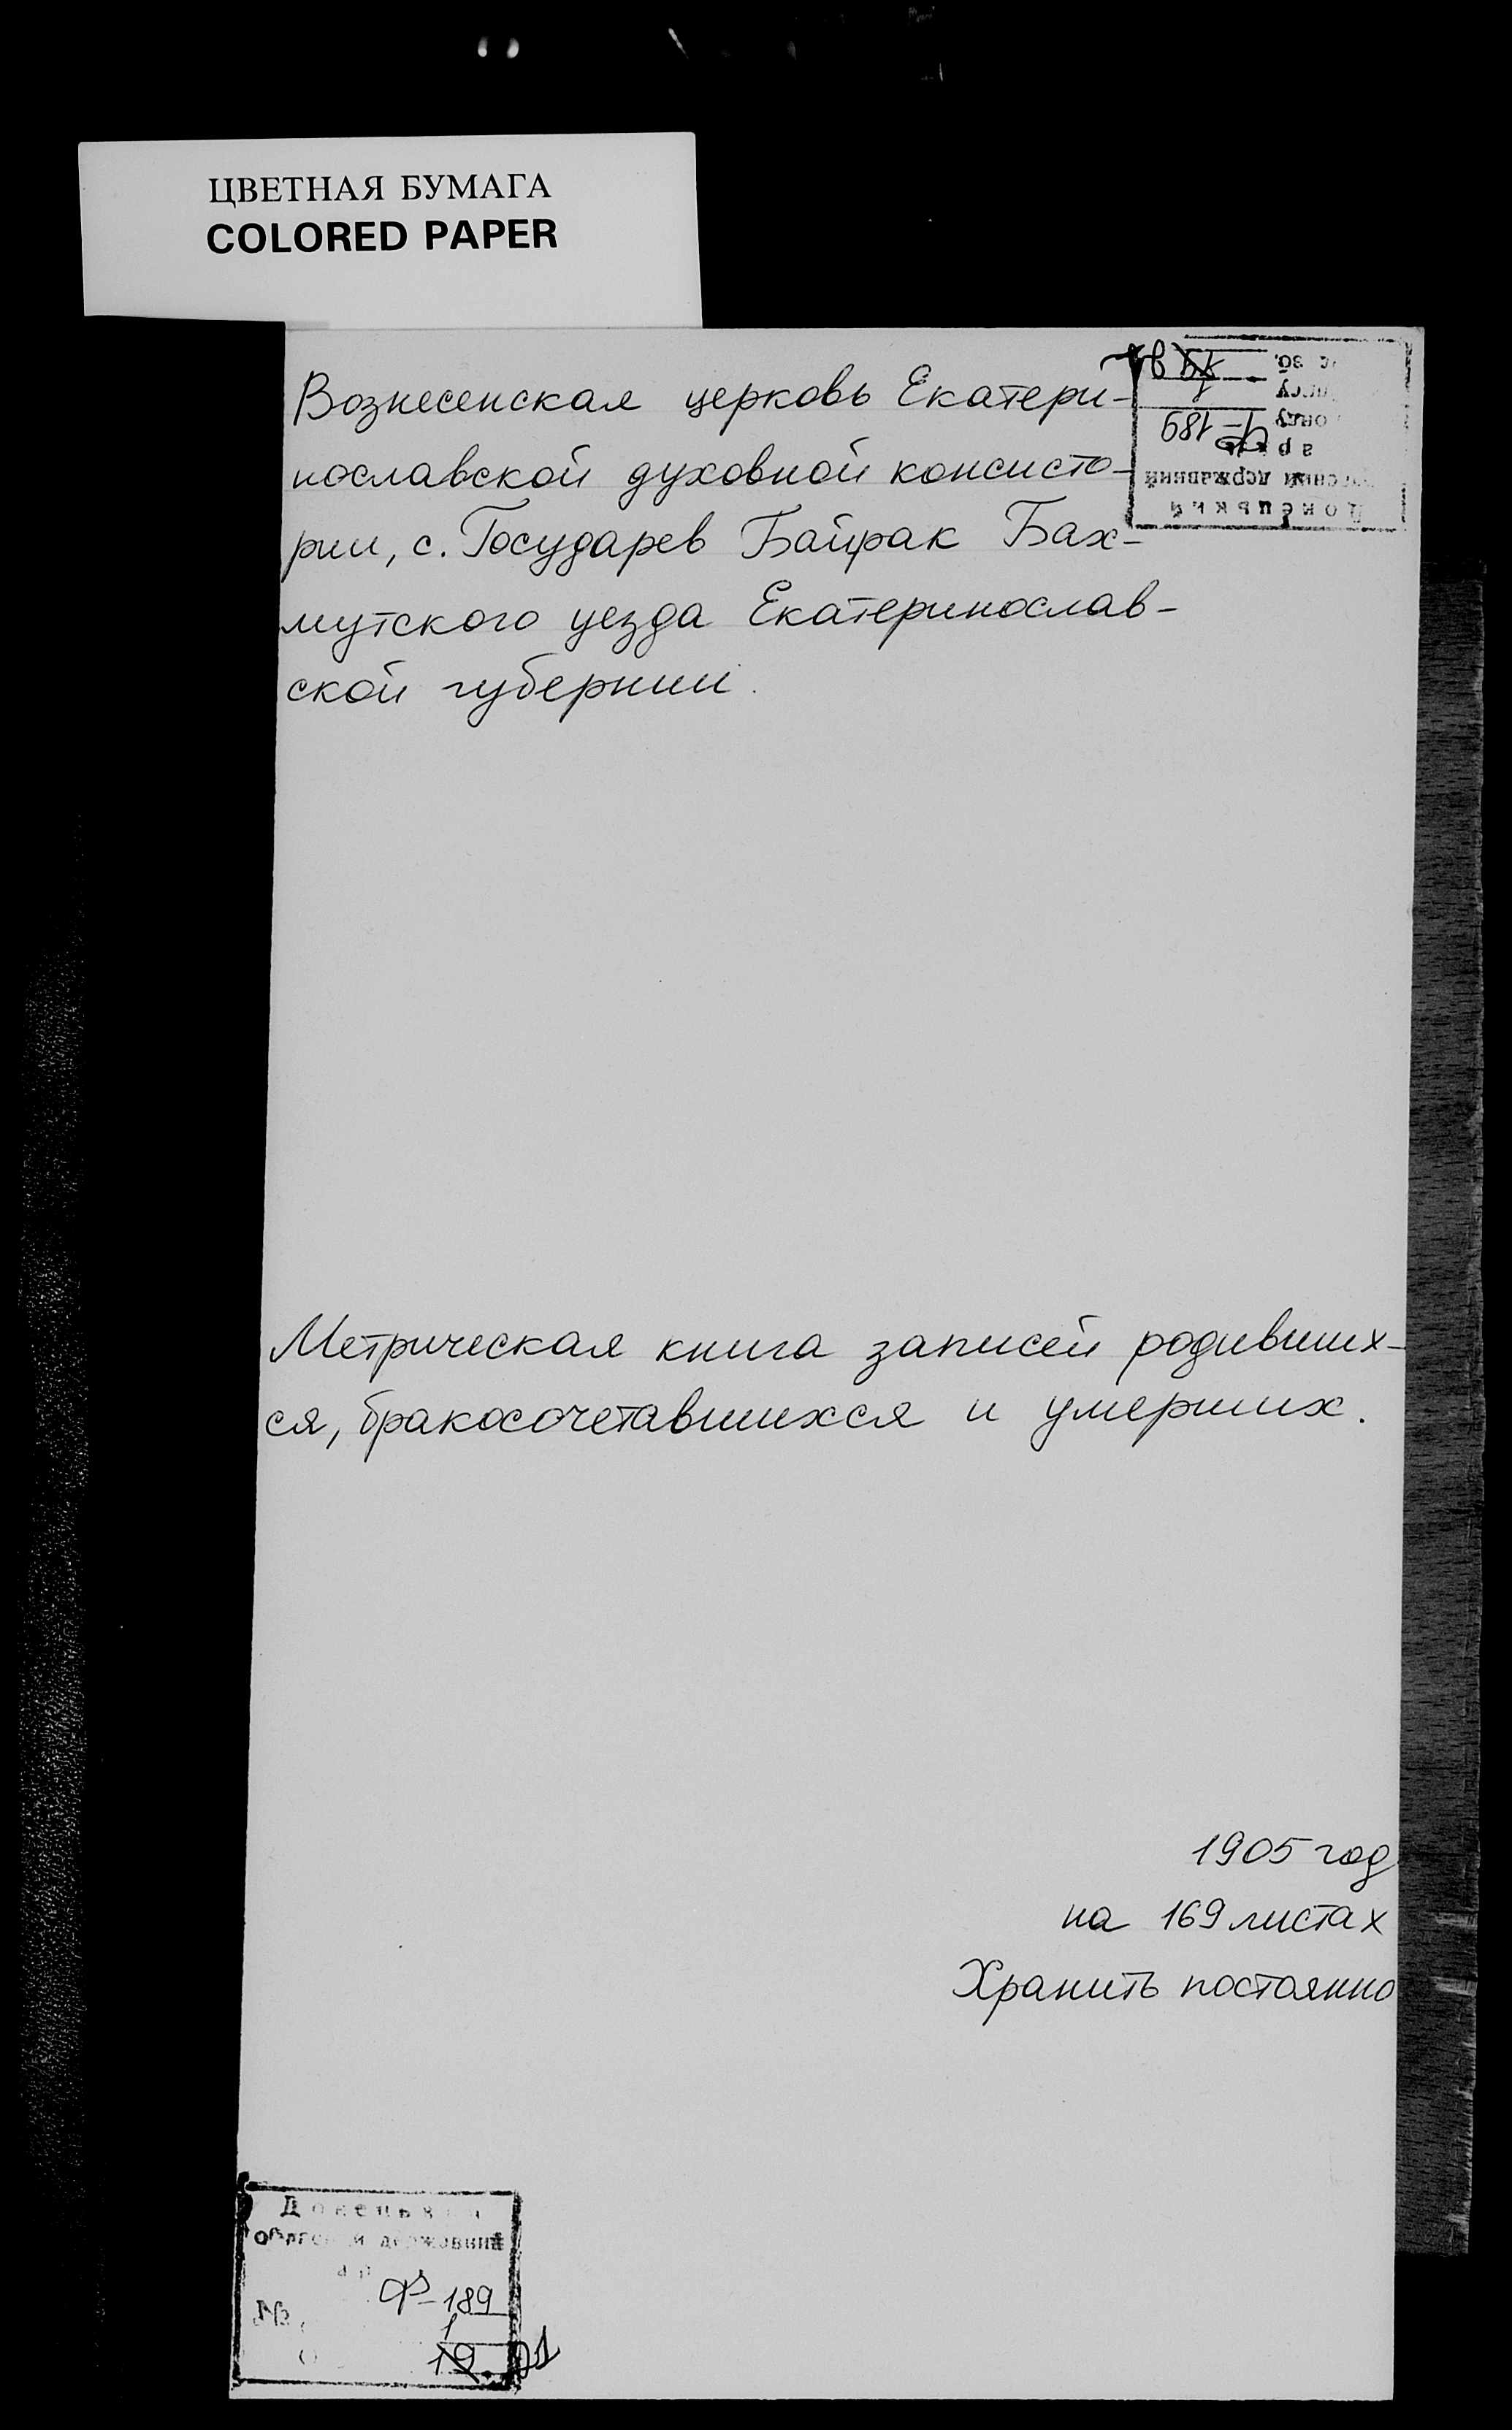 ЦВЕТНАЯ БУМАГА
COLORED PAPER
Вознесенская церковь Екатери-
нославской духовной консисто-
рии, с. Государев Байрак Бах-
мутского уезда Екатеринослав-
ской губернии.
Донецький
державний
Ф-189
1
Метрическая книга записей родивших-
ся, бракосочетавшихся и умерших.
1905 год
на 169 листах
Хранить постоянно
Донецький
обласний державний
Ф-189
№
1
19.